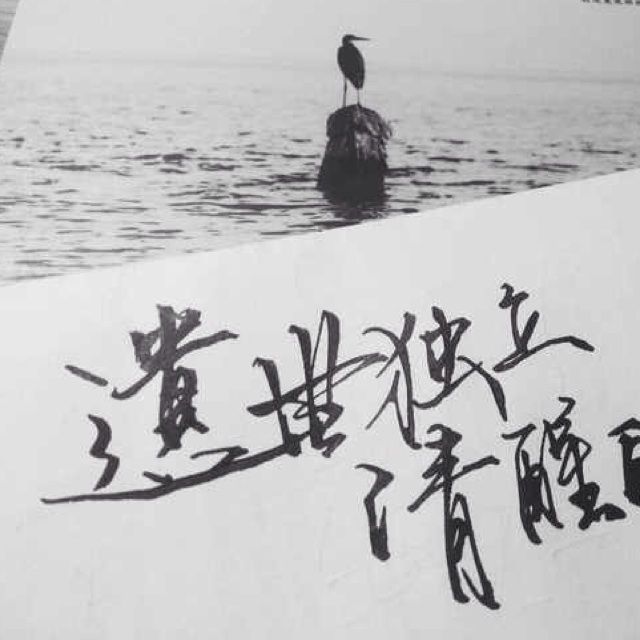 遗世独立
清醒自